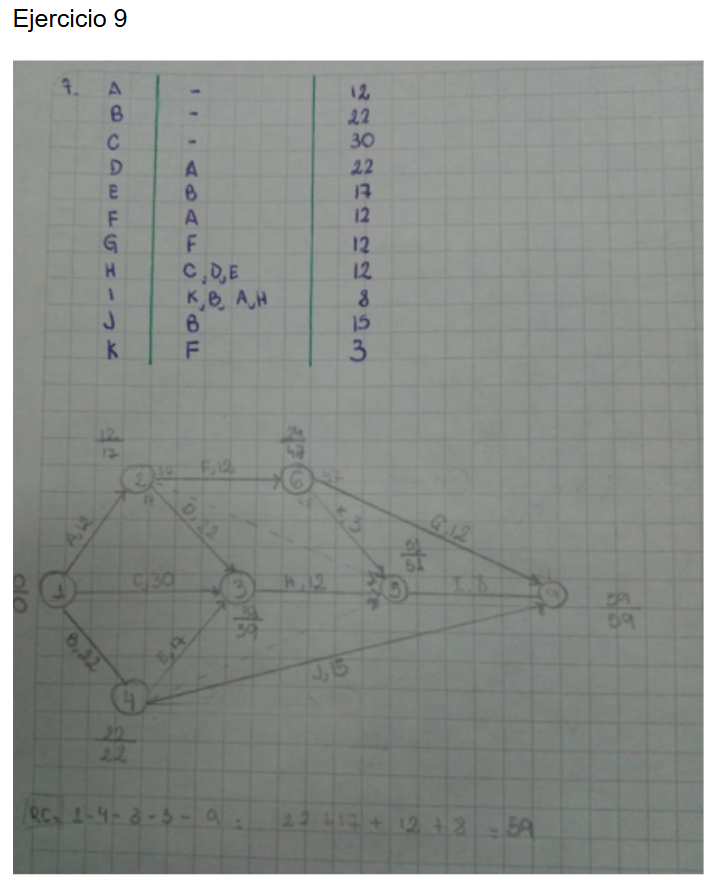 Ejercicio 9
7. A - 12
B - 22
C - 30
D A 22
E B 17
F A 12
G F 12
H C,D,E 12
I K,B, A,H 8
J B 15
K F 3
12/17
2
F,12
6
A,12
D,22
K,3
G,12
51/51
0/0
1
C,30
3
H,12
5
I,8
9
59/59
39/39
B,22
E,17
J,15
4
22/22
RC. 1-4-3-5-9 = 22+17+12+8 = 59